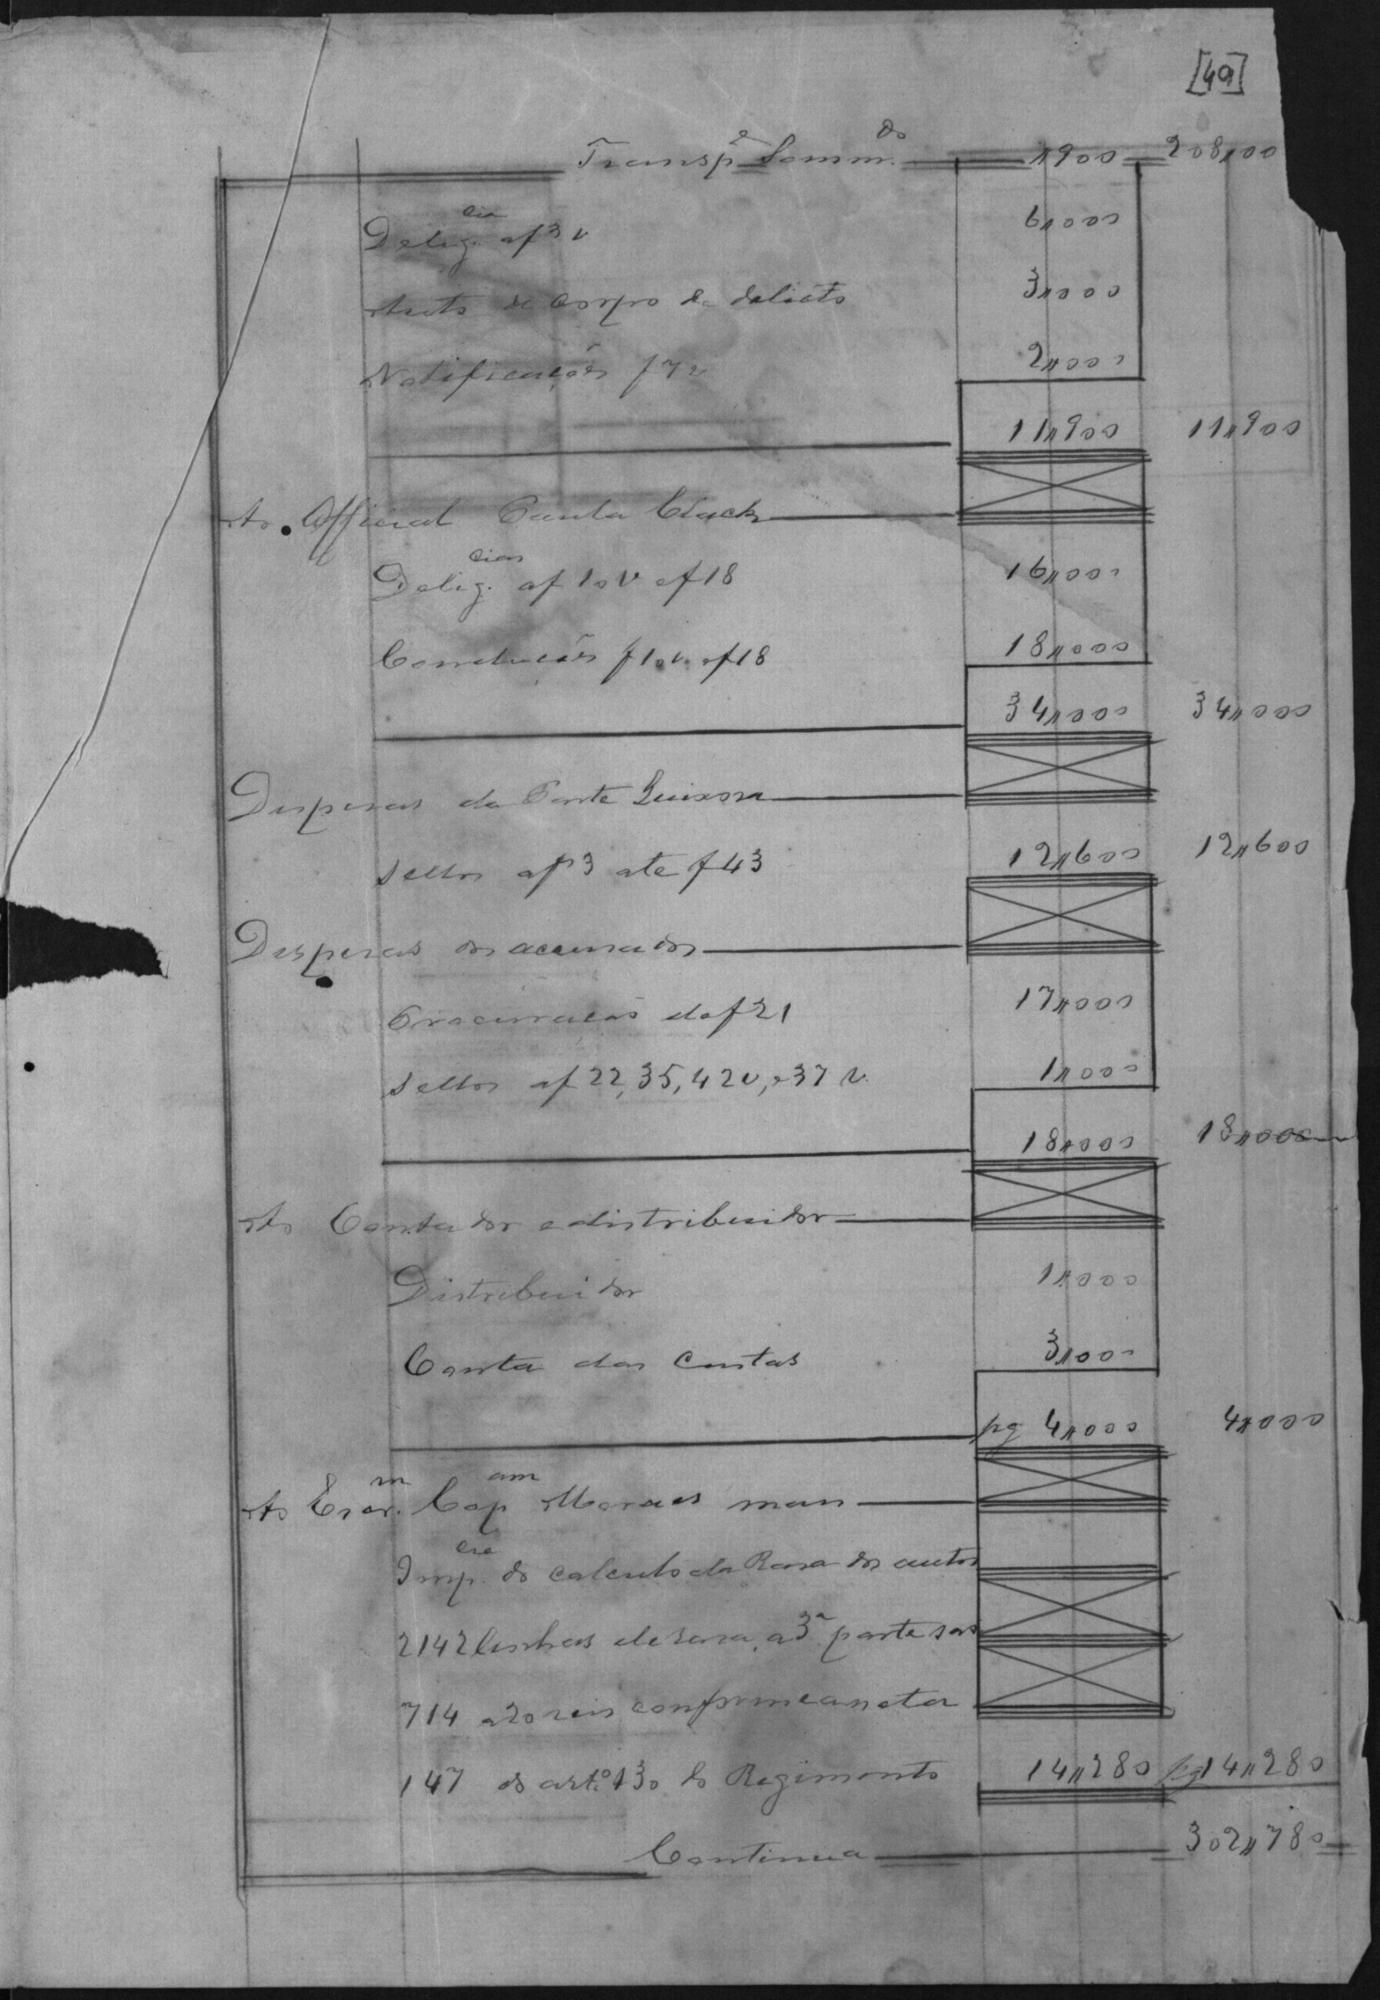 [49]
Transp.e Somm.do 1900 208,,00
Delig.cia af 3 v 6,,000
Auto de Corpo de delicto 3,,000
Notificações f 7 v 2,,000
11,,900 11,,900
Ao Official Paula Clack
Delig.cias af 10 v ef 18 16,,000
Conducções f 10 v. ef 18 18,,000
34,,000 34,,000
Despesas da Parte Queixosa
Sellos af 3 ate f 43 12,,600 12,,600
Despesas dos accusados
Procuração de f 21 17,,000
Sellos af 22, 35, 42 v, e 37 v. 1,,000
18,,000 18,,000
Ao Contador e distribuidor
Distribuidor 1,,000
Conta das Custas 3,,000
pg 4,,000 4,,000
Ao Escr.m Cap.am Moraes mais
Imp.cia do calculo da Rasa dos autos
2142 linhas de rasa, a 3ª parte sao
714 a 20 reis conforme a nota
147 do art.º 130 do Regimento 14,,280 pg 14,,280
Continua 302,,780